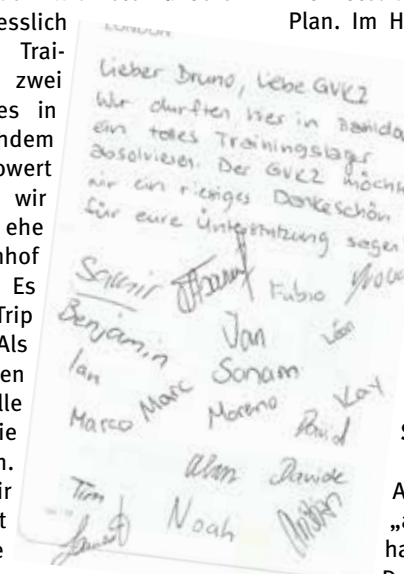 esslich
Trai-
zwei
es in
hdem
owert
wir
ehe
nhof
Es
Trip
Als
en
lle
ie
n.
ir
t
e
LONDON
Lieber Bruno, Liebe GVKZ
Wir durften hier in
ein tolles Trainingslager
absolvieren. Der GVKZ möchte
wir ein riesiges Dankeschön
für eure Unterstützung sagen
Samir Fabio
Benjamin Jan
Ian Sonam
Marco Marc Moreno Kay
David
Davide
Tim Noah
Plan. Im H
S
A
„a
ha